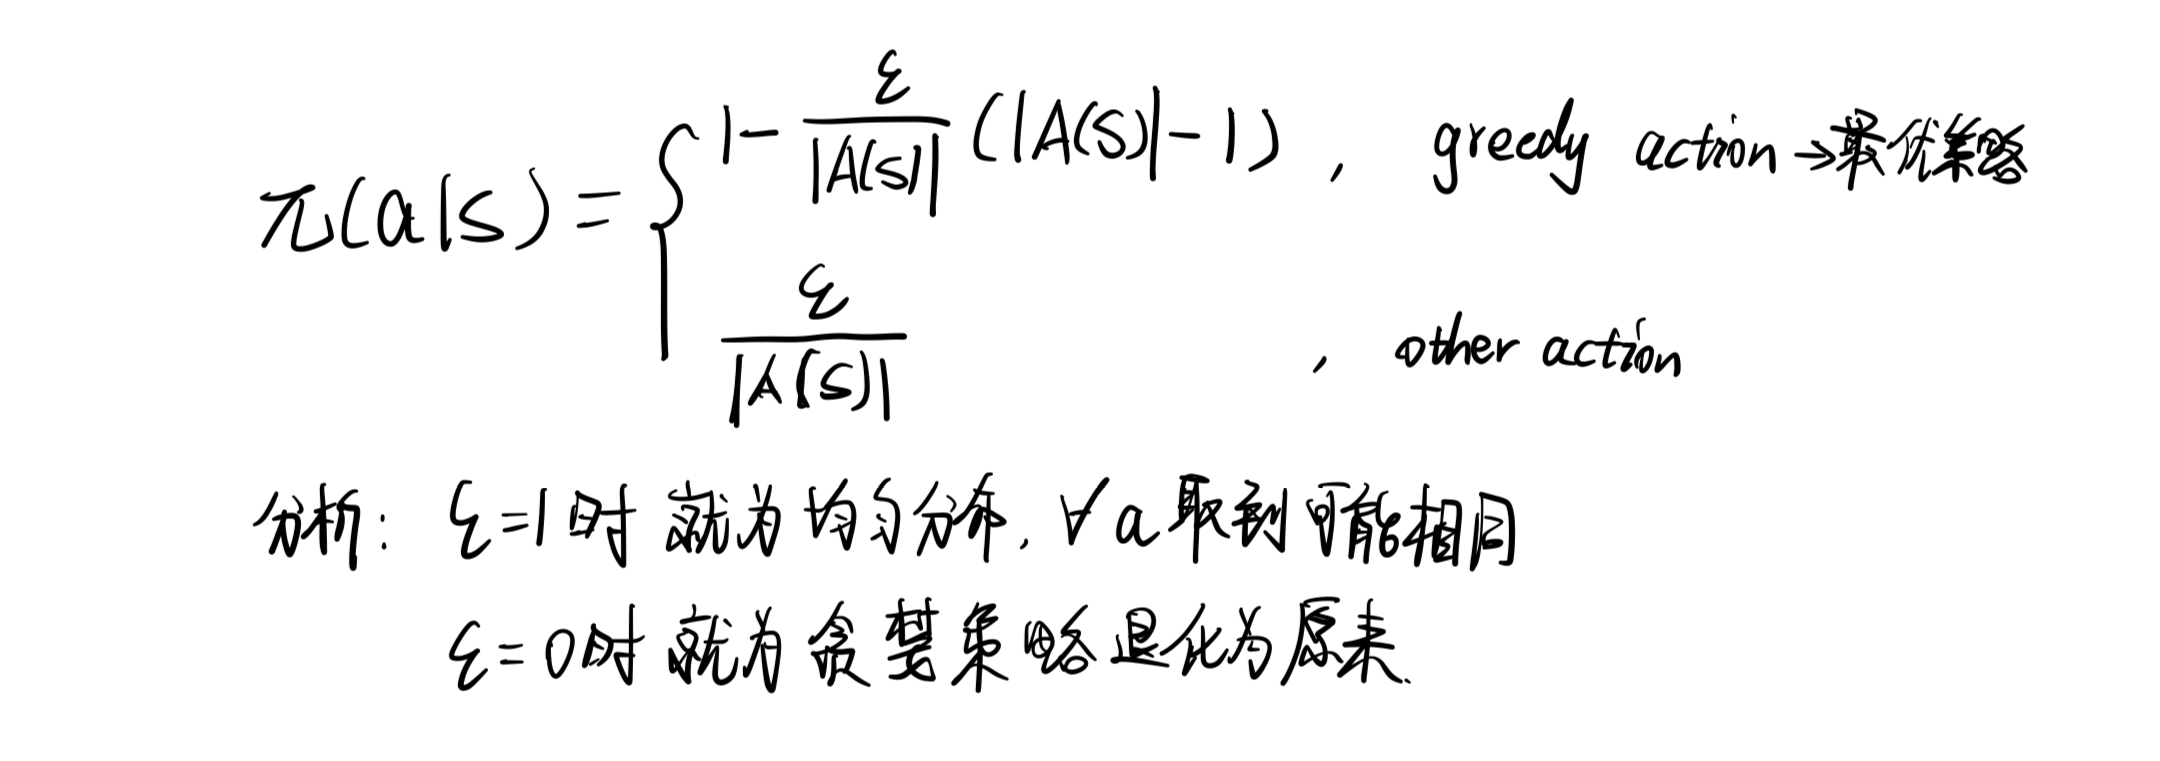 π(a|s) = { 1 - ε/|A(s)| (|A(s)| - 1) , greedy action → 最优策略
ε/|A(s)| , other action
分析: ε=1时 就为 均匀分布, ∀ a 取到可能相同
ε=0时 就为 贪婪策略退化为原来.